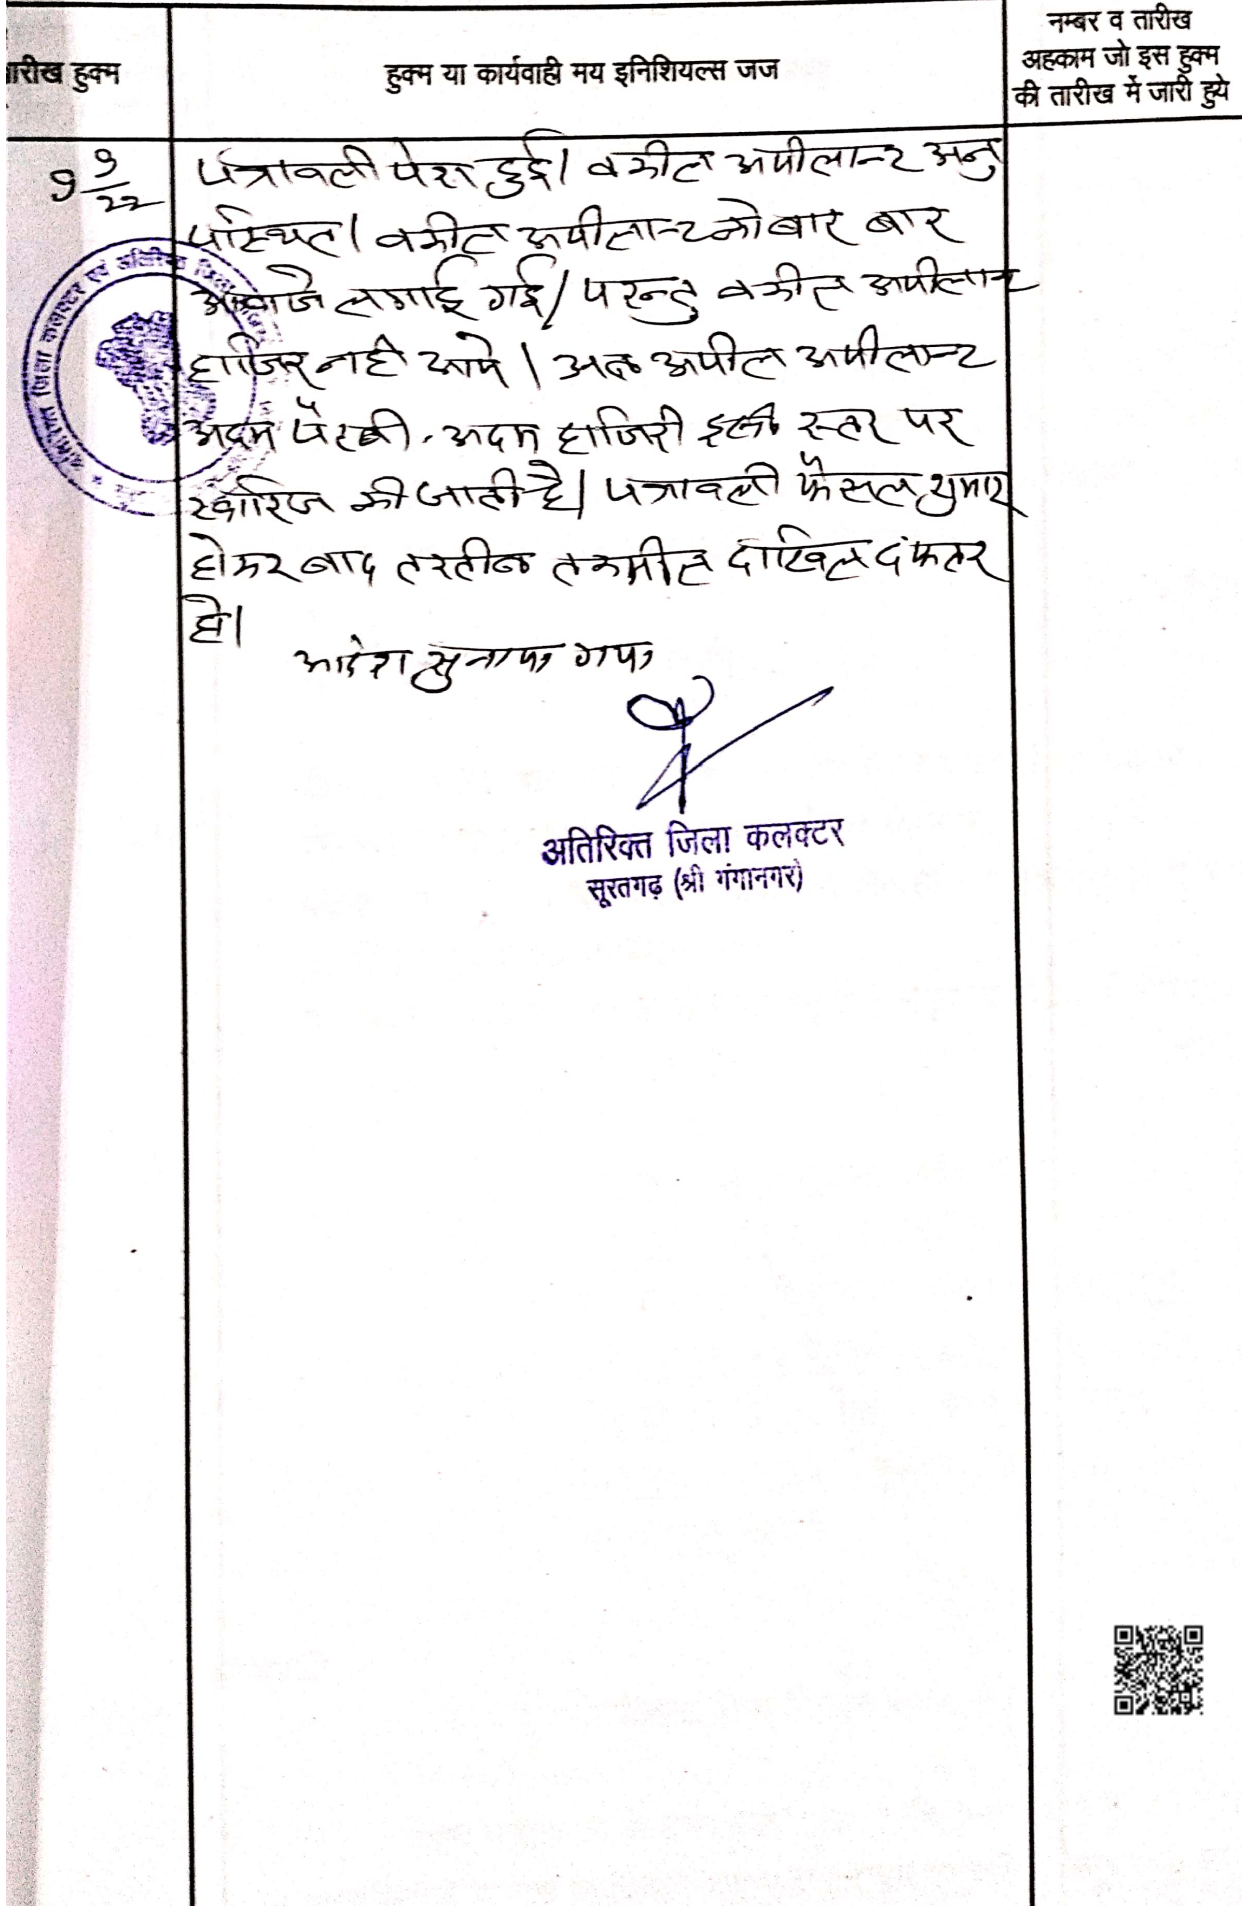 तारीख हुक्म
हुक्म या कार्यवाही मय इनिशियल्स जज
नम्बर व तारीख
अहकाम जो इस हुक्म
की तारीख में जारी हुये
9 9/22
पत्रावली पेश हुई। वकील अपीलान्ट अनु
पस्थित। वकील अपीलान्ट को बार बार
आवाजे लगाई गई। परन्तु वकील अपीलान्ट
हाजिर नही आये। अतः अपील अपीलान्ट
अदम पैरवी, अदम हाजिरी इसी स्तर पर
खारिज की जाती है। पत्रावली फैसल शुमार
होकर बाद तरतीब तकमील दाखिल दफ्तर
हो।
आदेश सुनाया गया
अतिरिक्त जिला कलक्टर
सूरतगढ़ (श्री गंगानगर)
अतिरिक्त जिला कलक्टर एवं अतिरिक्त जिला